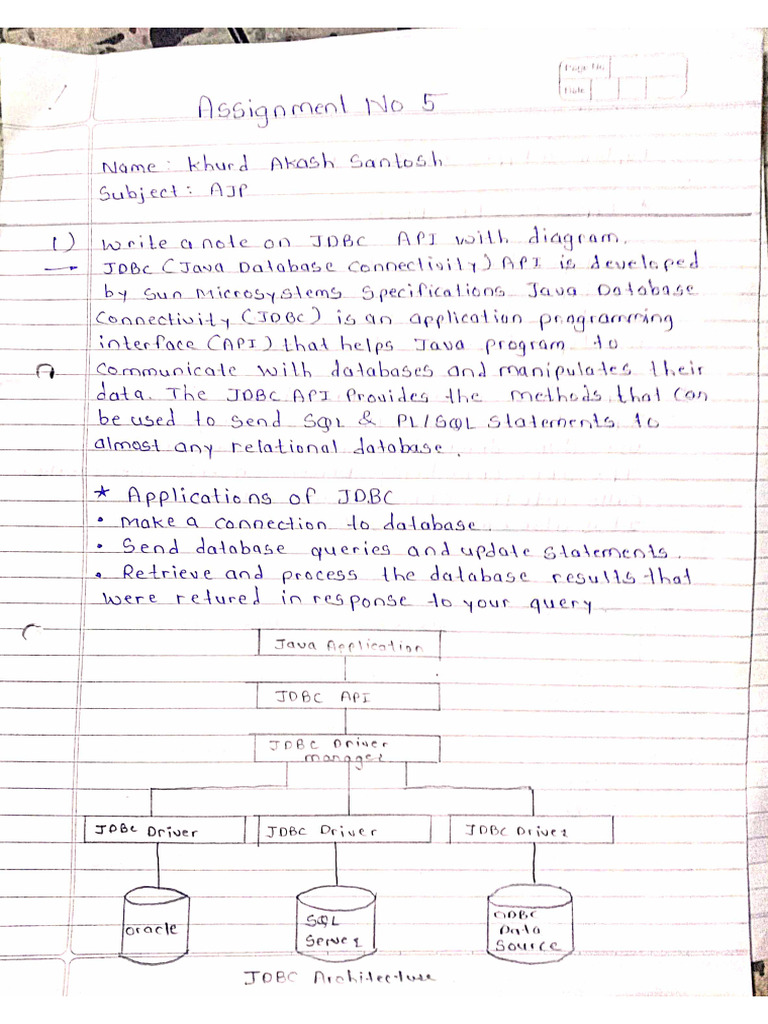 Page No.
Date
Assignment No 5
Name: Khurd Akash Santosh
Subject: AJP
1) Write a note on JDBC API with diagram.
→ JDBC (Java Database Connectivity) API is developed
by Sun Microsystems Specifications Java Database
Connectivity (JDBC) is an application programming
interface (API) that helps Java program to
communicate with databases and manipulates their
data. The JDBC API Provides the methods that can
be used to send SQL & PL/SQL statements to
almost any relational database.
* Applications of JDBC
• Make a connection to database.
• Send database queries and update statements.
• Retrieve and process the database results that
were retured in response to your query
Java Application
JDBC API
JDBC Driver
manager
JDBC Driver JDBC Driver JDBC Driver
oracle
SQL
Server
ODBC
Data
Source
JDBC Architecture